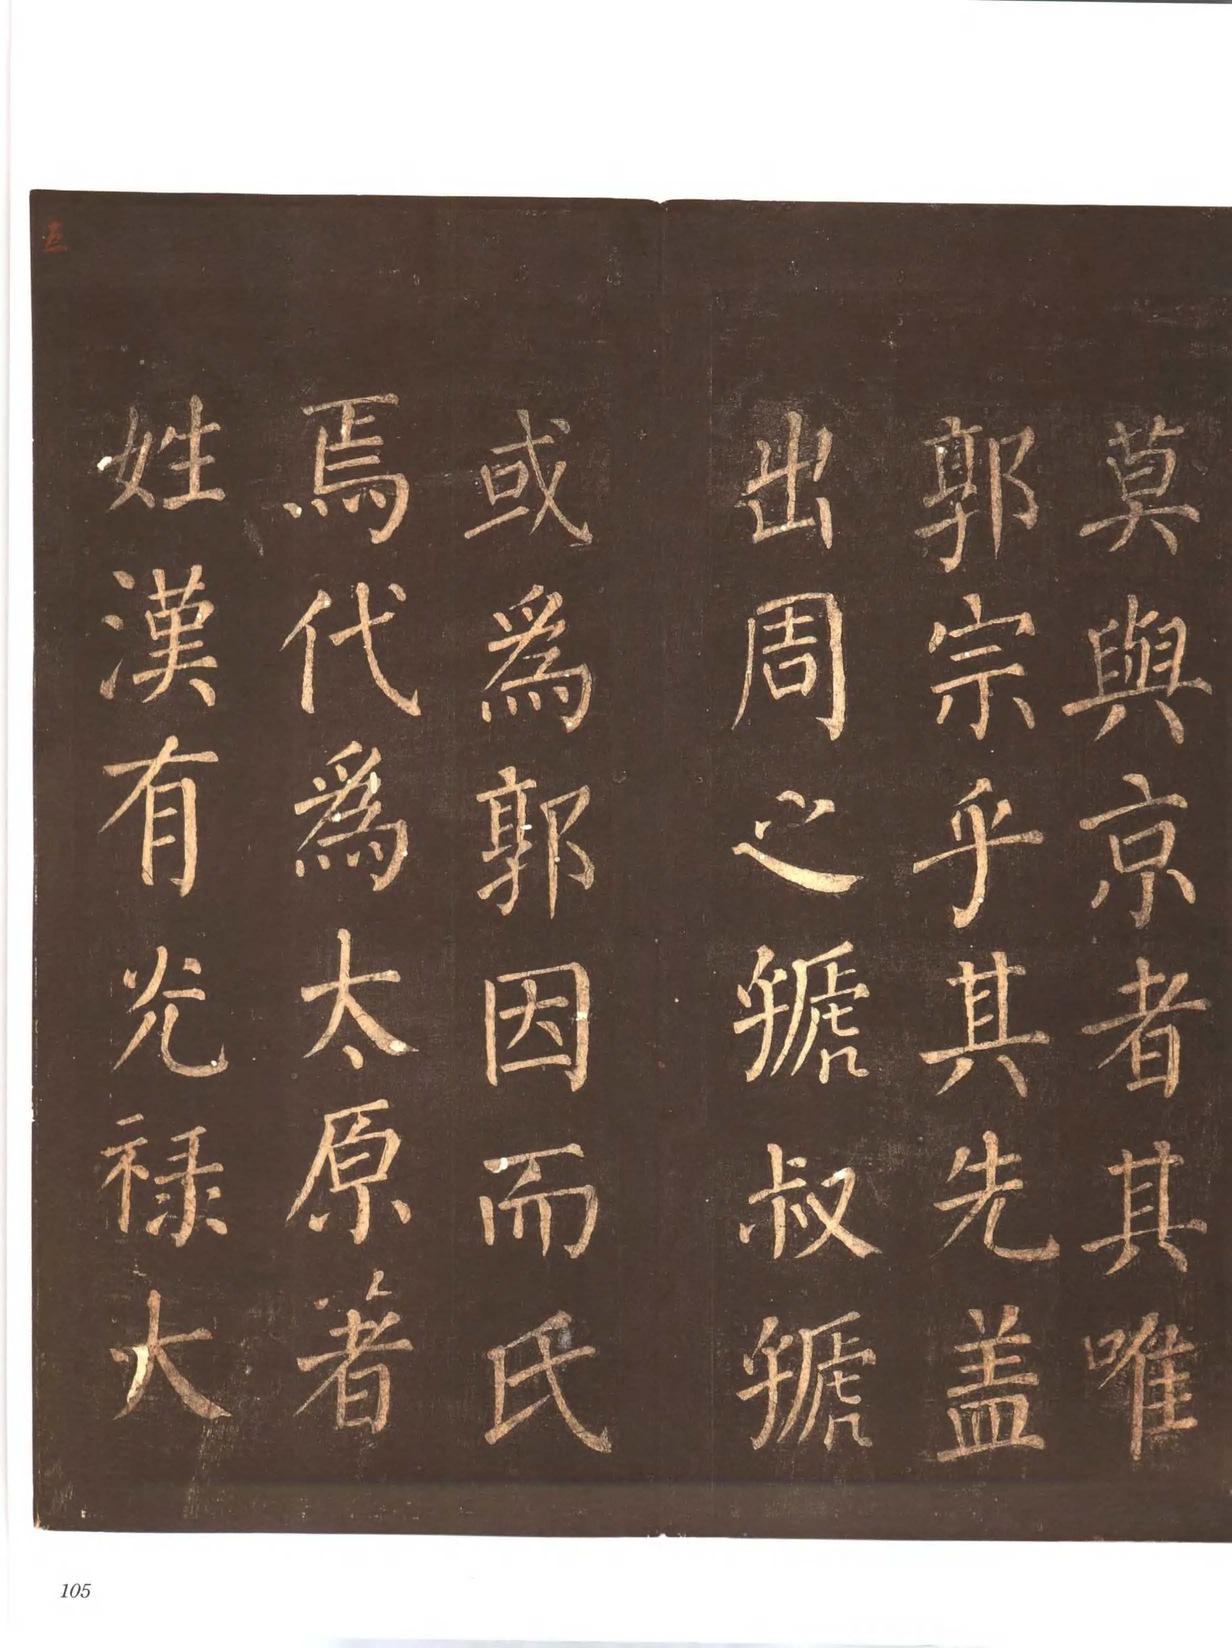 莫與京者其唯
郭宗乎其先盖
出周之虢叔虢
或為郭因而氏
焉代為太原著
姓漢有光禄大
五
105